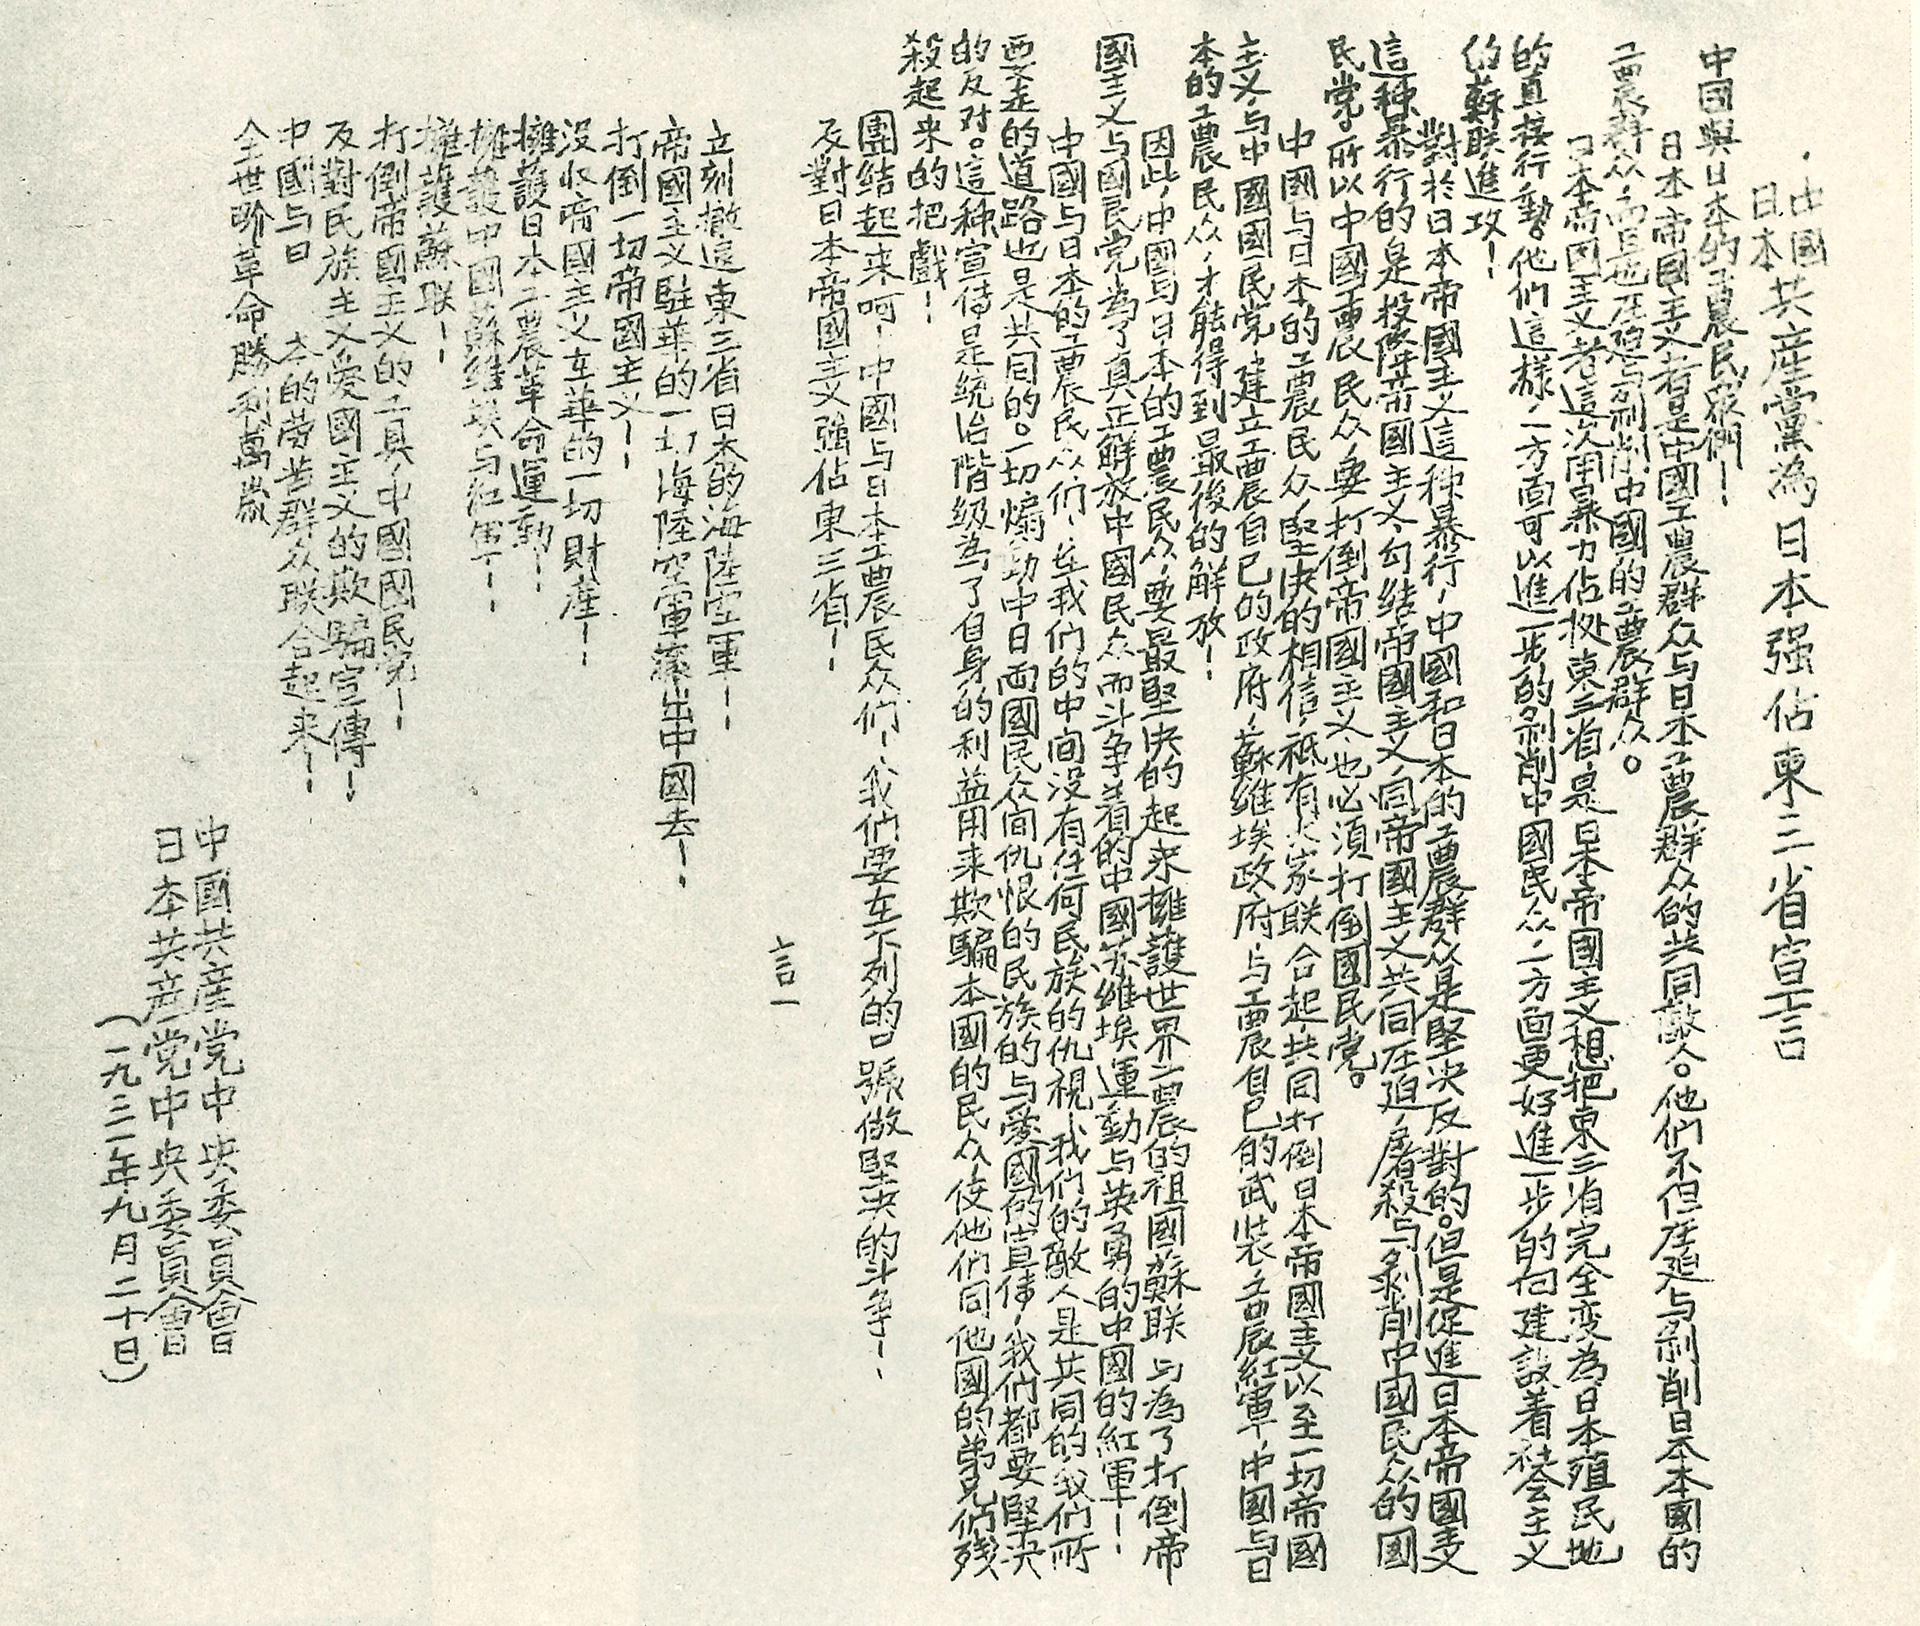 中國
日本共産黨為日本强佔東三省宣言
中國與日本的工農民眾們！
日本帝國主义者是中國工農群众与日本工農群众的共同敵人。他们不但压迫与剥削日本本國的
工農群众，而且也压迫与剥削中國的工農群众。
日本帝國主义者這次用暴力佔据東三省，是日本帝國主义想把東三省完全变為日本殖民地
的直接行動。他们這樣，一方面可以進一步的剥削中國民众，一方面更好進一步的向建設着社会主义
的蘇联進攻！
對於日本帝國主义這种暴行，中國和日本的工農群众是堅决反對的。但是促進日本帝國主义
這种暴行的是投降帝國主义，勾结帝國主义，同帝國主义共同压迫，屠殺与剥削中國民众的國
民党。所以中國工農民众，要打倒帝國主义，也必須打倒國民党。
中國与日本的工農民众，堅决的相信，祗有大家联合起，共同打倒日本帝國主义以至一切帝國
主义，与中國國民党，建立工農自己的政府，蘇維埃政府，与工農自己的武装，工農紅軍，中國与日
本的工農民众，才能得到最後的解放！
因此，中國与日本的工農民众，要最堅决的起來擁護世界工農的祖國蘇联，与為了打倒帝
國主义与國民党，為了真正解放中國民众而斗争着的中國苏維埃運動与英勇的中國的紅軍！
中國与日本的工農民众们，在我们的中间没有任何民族的仇視，我们的敵人是共同的，我们所
要走的道路也是共同的。一切煽动中日両國民众间仇恨的民族的与愛國的宣傳，我们都要堅决
的反对。這种宣傳是统治階级為了自身的利益用来欺騙本國的民众使他们同他國的弟兄们残
殺起来的把戲！
團结起来呵！中國与日本工農民众们！我们要在下列的口號做堅决的斗争！
反對日本帝國主义强佔東三省！
言一
立刻撤退東三省日本的海陸空軍！
帝國主义駐華的一切海陸空軍滚出中國去！
打倒一切帝國主义！
没收帝國主义在華的一切財産！
擁護日本工農革命運動！
擁護中國蘇维埃与红軍！
擁護蘇联！
打倒帝國主义的工具，中國國民党！
反對民族主义愛國主义的欺騙宣傳！
中國与日　本的劳苦群众联合起来！
全世畍革命勝利萬歲
中國共産党中央委員會
日本共産党中央委員會
（一九三一年九月二十日）